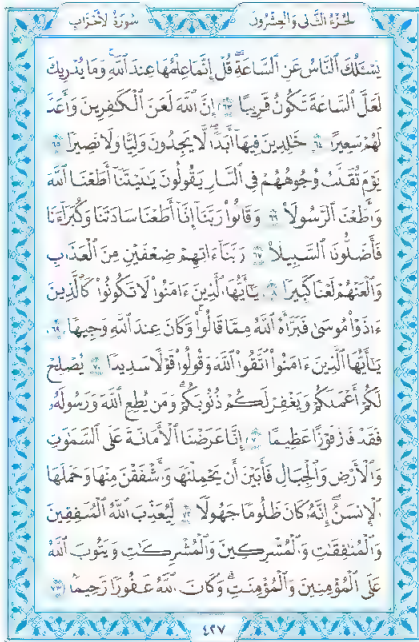 الجزء الثاني والعشرون
سورة الأحزاب
يَسْـَٔلُكَ ٱلنَّاسُ عَنِ ٱلسَّاعَةِ ۖ قُلْ إِنَّمَا عِلْمُهَا عِندَ ٱللَّهِ ۚ وَمَا يُدْرِيكَ
لَعَلَّ ٱلسَّاعَةَ تَكُونُ قَرِيبًا ٦٣ إِنَّ ٱللَّهَ لَعَنَ ٱلْكَـٰفِرِينَ وَأَعَدَّ
لَهُمْ سَعِيرًا ٦٤ خَـٰلِدِينَ فِيهَآ أَبَدًا ۖ لَّا يَجِدُونَ وَلِيًّا وَلَا نَصِيرًا ٦٥
يَوْمَ تُقَلَّبُ وُجُوهُهُمْ فِى ٱلنَّارِ يَقُولُونَ يَـٰلَيْتَنَآ أَطَعْنَا ٱللَّهَ
وَأَطَعْنَا ٱلرَّسُولَا۠ ٦٦ وَقَالُوا۟ رَبَّنَآ إِنَّآ أَطَعْنَا سَادَتَنَا وَكُبَرَآءَنَا
فَأَضَلُّونَا ٱلسَّبِيلَا۠ ٦٧ رَبَّنَآ ءَاتِهِمْ ضِعْفَيْنِ مِنَ ٱلْعَذَابِ
وَٱلْعَنْهُمْ لَعْنًا كَبِيرًا ٦٨ يَـٰٓأَيُّهَا ٱلَّذِينَ ءَامَنُوا۟ لَا تَكُونُوا۟ كَٱلَّذِينَ
ءَاذَوْا۟ مُوسَىٰ فَبَرَّأَهُ ٱللَّهُ مِمَّا قَالُوا۟ ۚ وَكَانَ عِندَ ٱللَّهِ وَجِيهًا ٦٩
يَـٰٓأَيُّهَا ٱلَّذِينَ ءَامَنُوا۟ ٱتَّقُوا۟ ٱللَّهَ وَقُولُوا۟ قَوْلًا سَدِيدًا ٧٠ يُصْلِحْ
لَكُمْ أَعْمَـٰلَكُمْ وَيَغْفِرْ لَكُمْ ذُنُوبَكُمْ ۗ وَمَن يُطِعِ ٱللَّهَ وَرَسُولَهُۥ
فَقَدْ فَازَ فَوْزًا عَظِيمًا ٧١ إِنَّا عَرَضْنَا ٱلْأَمَانَةَ عَلَى ٱلسَّمَـٰوَٰتِ
وَٱلْأَرْضِ وَٱلْجِبَالِ فَأَبَيْنَ أَن يَحْمِلْنَهَا وَأَشْفَقْنَ مِنْهَا وَحَمَلَهَا
ٱلْإِنسَـٰنُ ۖ إِنَّهُۥ كَانَ ظَلُومًا جَهُولًا ٧٢ لِّيُعَذِّبَ ٱللَّهُ ٱلْمُنَـٰفِقِينَ
وَٱلْمُنَـٰفِقَـٰتِ وَٱلْمُشْرِكِينَ وَٱلْمُشْرِكَـٰتِ وَيَتُوبَ ٱللَّهُ
عَلَى ٱلْمُؤْمِنِينَ وَٱلْمُؤْمِنَـٰتِ ۗ وَكَانَ ٱللَّهُ غَفُورًا رَّحِيمًۢا ٧٣
٤٢٧